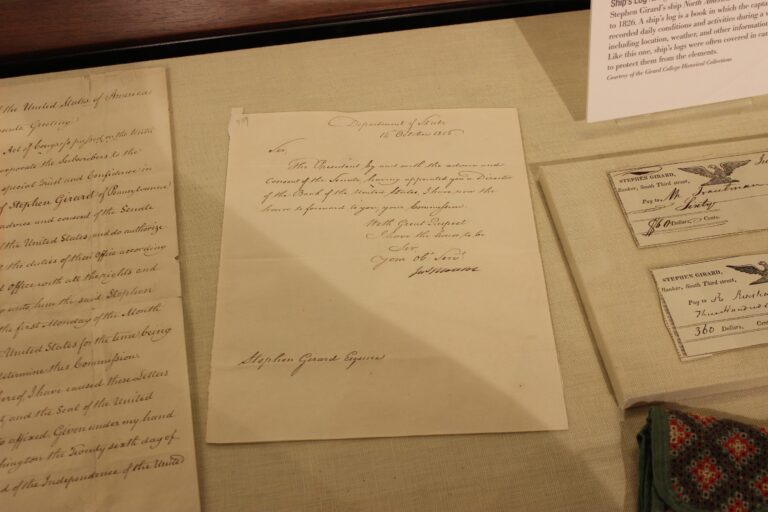 f the United States of America
Greeting:
Act of Congress passed on the
orporate the Subscribers to the
special Trust and Confidence in
of Stephen Girard of Pennsylvania
advice and consent of the Senate
of the United States, and do authorize
the duties of that Office according
Office with all the rights and
unto him the said Stephen
the first Monday of the Month
United States for the time being
determine this Commission.
I have caused these Letters
and the Seal of the United
affixed. Given under my hand
the Twenty sixth day of
of the Independence of the United
Department of State
October
Sir,
The President by and with the advice and
consent of the Senate, having appointed you a Director
of the Bank of the United States, I have now the
honor to forward to you, your Commission.
With Great Respect
I have the honor to be
Sir
Your Obt Servt
Jas Monroe
Stephen Girard Esquire
Ship's Log
Stephen Girard's ship North America
to 1826. A ship's log is a book in which the capta
recorded daily conditions and activities during a v
including location, weather, and other information
Like this one, ship's logs were often covered in can
to protect them from the elements.
Courtesy of the Girard College Historical Collections
STEPHEN GIRARD,
Banker, South Third street,
Pay to Mr. Trautman
Sixty
$60 Dollars, Cents.
STEPHEN GIRARD,
Banker, South Third street,
Pay to
Three Hundred
360 Dollars, Cent